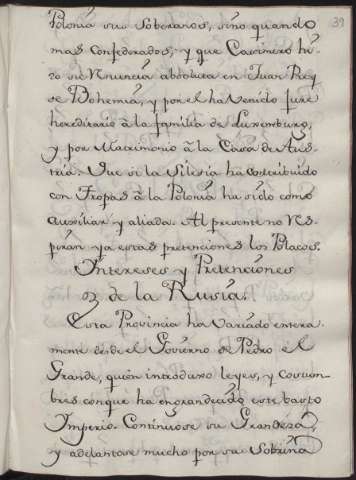 39
Polonia sus Soberanos, sino quando
mas Confederados; y que Casimiro hi-
zo renuncia absoluta en Juan Rey
de Bohemia, y por el ha venido jure
hereditario à la familia de Luxemburg,
y por Matrimonio à la Casa de Aus-
tria. Que si la Silesia ha contribuido
con Tropas à la Polonia ha sido como
Auxiliar y aliada. Al presente no res-
piran ya estas pretenciones los Polacos.
Intereses y Pretenciones
de la Rusia.
Esta Provincia ha variado entera-
mente desde el Govierno de Pedro el
Grande, quien introduxo leyes, y costum-
bres conque ha engrandecido este basto
Imperio. Continuose su Grandeza,
y adelantose mucho por su Sobrina